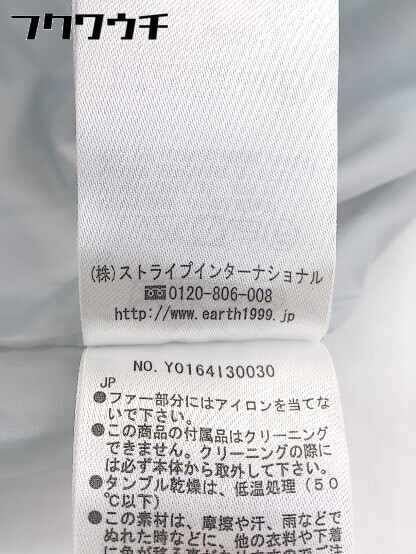 フクワウチ
(株)ストライプインターナショナル
0120-806-008
http://www.earth1999.jp
NO. Y0164I30030
JP
●ファー部分にはアイロンを当てな
いで下さい。
●この商品の付属品はクリーニング
できません。クリーニングの際に
は必ず本体から取外して下さい。
●タンブル乾燥は、低温処理(50
℃以下)
●この素材は、摩擦や汗、雨などで
ぬれた時などに、他の衣料や下着